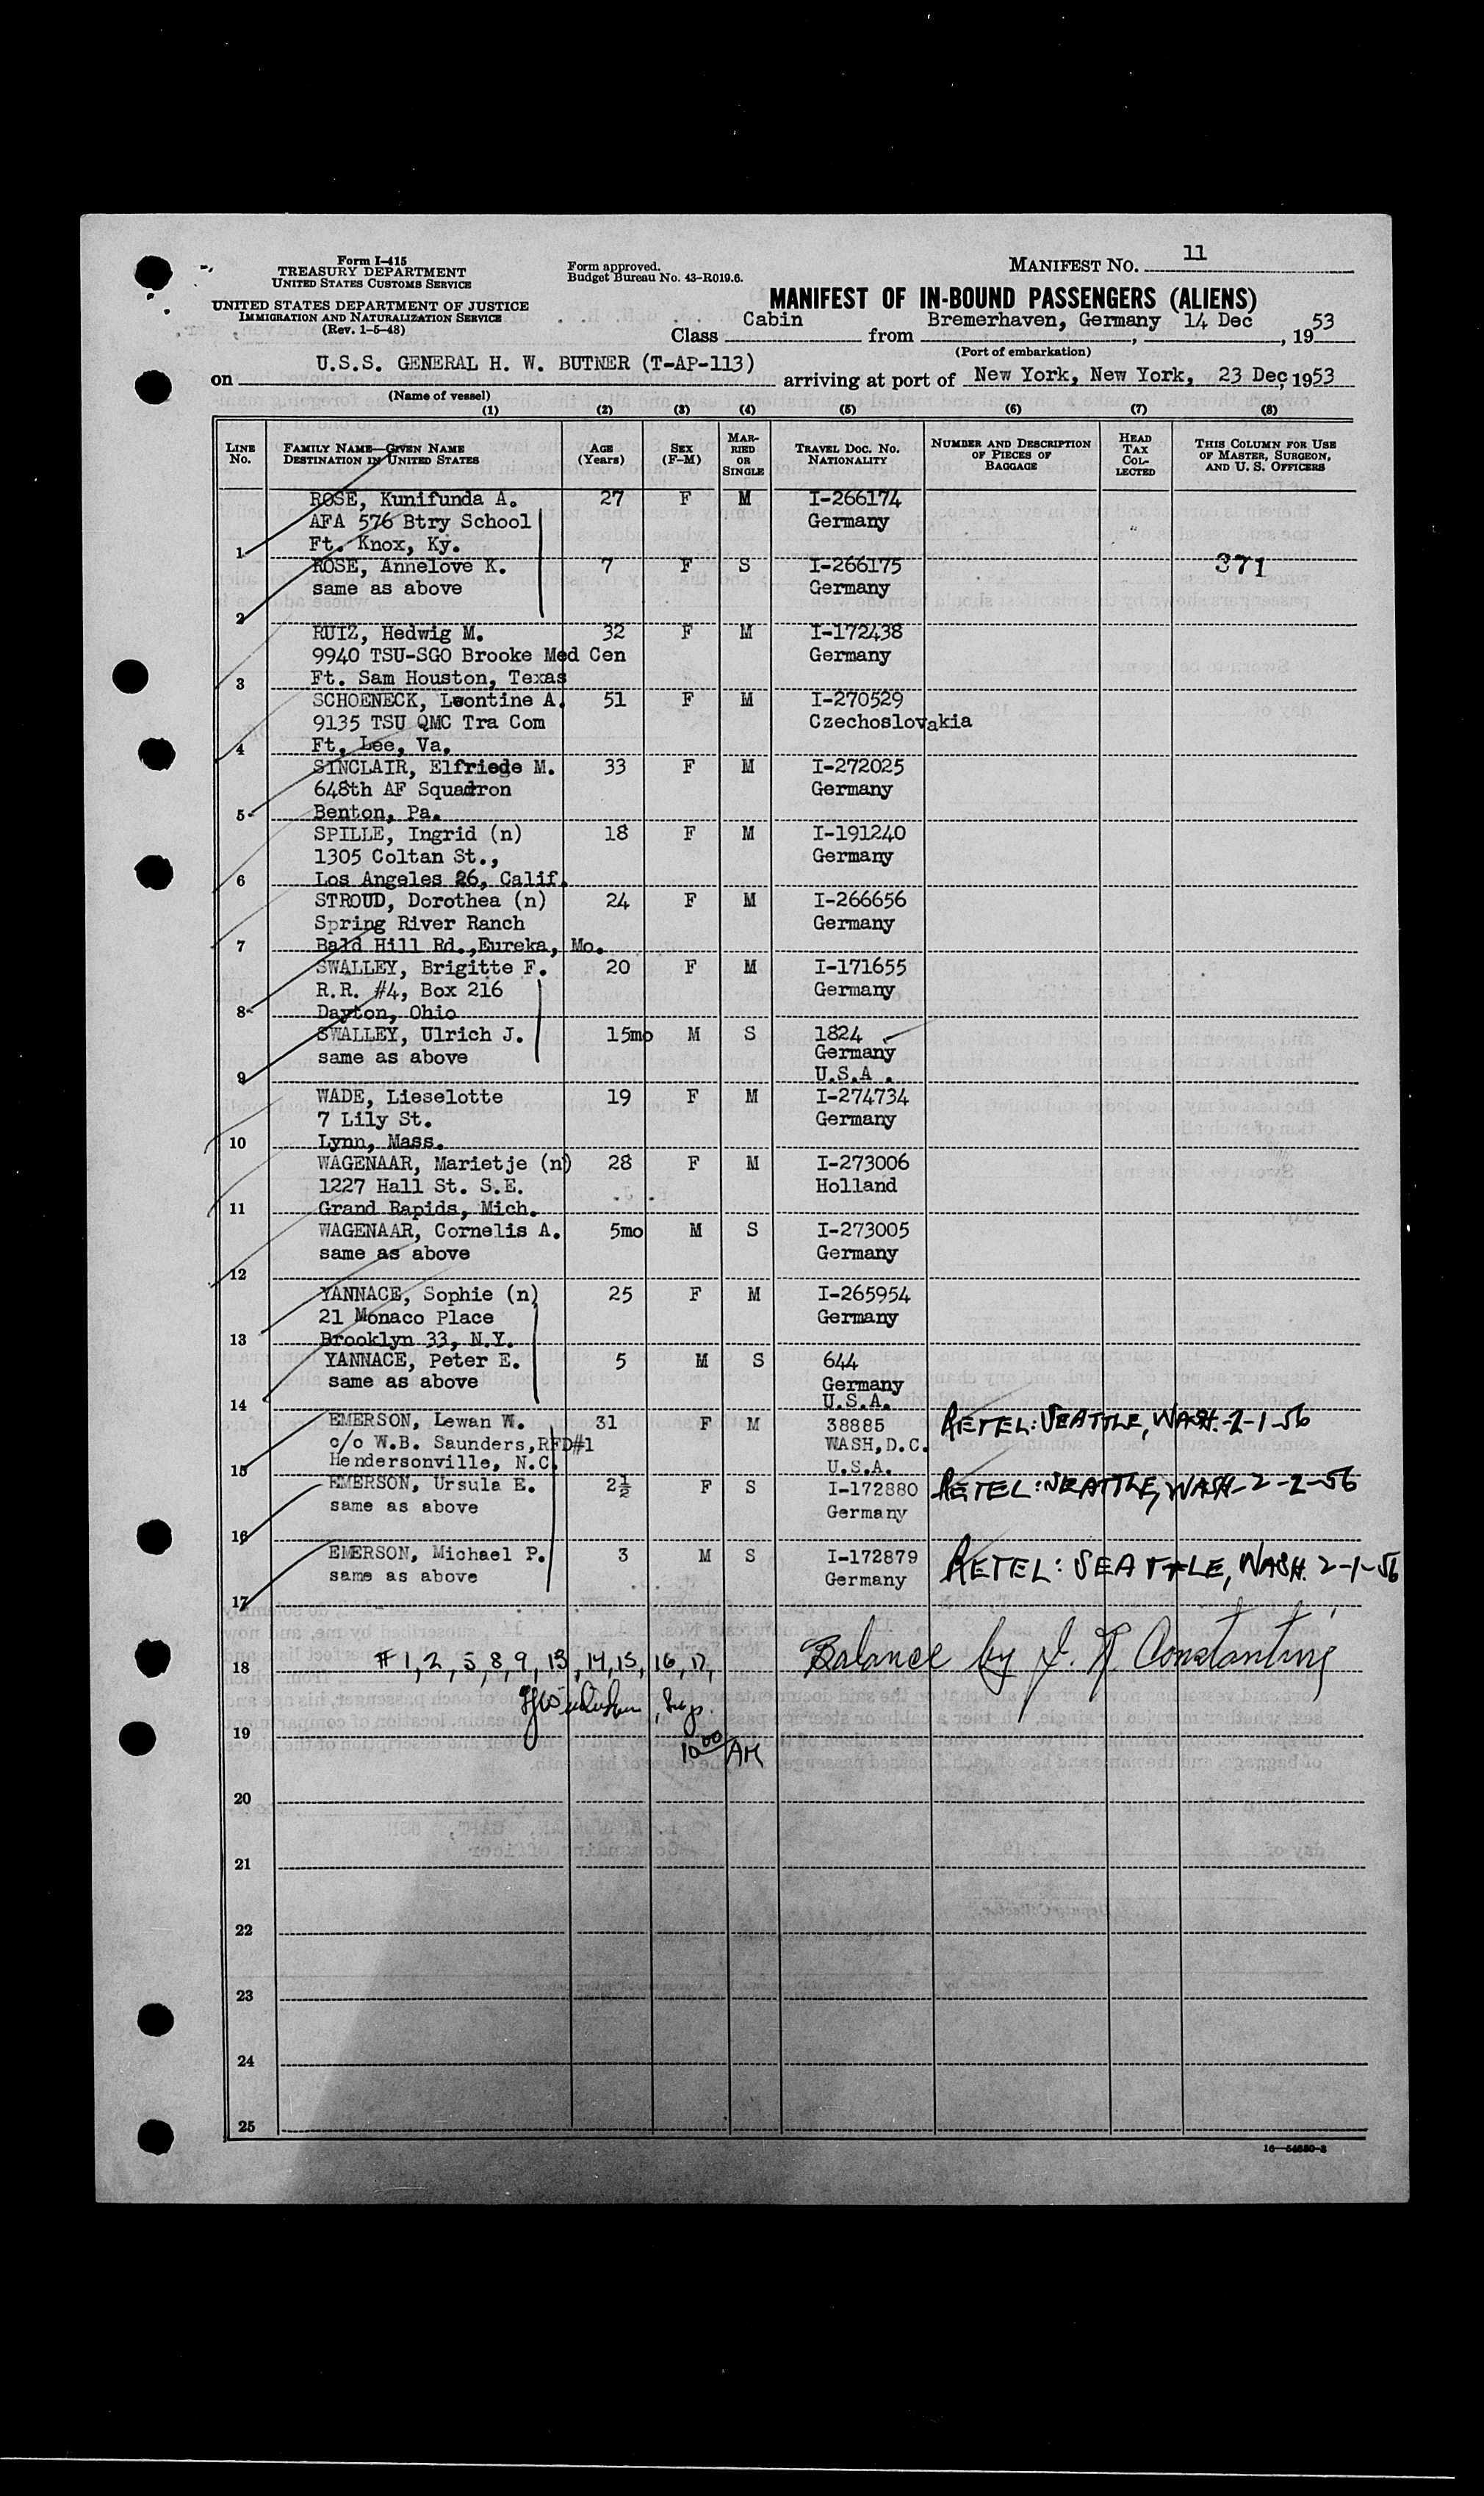 Form I-415
TREASURY DEPARTMENT
UNITED STATES CUSTOMS SERVICE
UNITED STATES DEPARTMENT OF JUSTICE
IMMIGRATION AND NATURALIZATION SERVICE
(Rev. 1-5-48)
Form approved.
Budget Bureau No. 43-R019.6.
MANIFEST NO. 11
MANIFEST OF IN-BOUND PASSENGERS (ALIENS)
Class Cabin from Bremerhaven, Germany, 14 Dec, 1953
(Port of embarkation)
on U.S.S. GENERAL H. W. BUTNER (T-AP-113) arriving at port of New York, New York, 23 Dec, 1953
(Name of vessel)
(1) (2) (3) (4) (5) (6) (7) (8)
LINE No. FAMILY NAME—GIVEN NAME DESTINATION IN UNITED STATES AGE (Years) SEX (F-M) MARRIED OR SINGLE TRAVEL DOC. NO. NATIONALITY NUMBER AND DESCRIPTION OF PIECES OF BAGGAGE HEAD TAX COLLECTED THIS COLUMN FOR USE OF MASTER, SURGEON, AND U. S. OFFICERS
ROSE, Kunifunda A. 27 F M I-266174
AFA 576 Btry School Germany
1 Ft. Knox, Ky.
ROSE, Annelove K. 7 F S I-266175 371
same as above Germany
2
RUIZ, Hedwig M. 32 F M I-172438
9940 TSU-SGO Brooke Med Cen Germany
3 Ft. Sam Houston, Texas
SCHOENECK, Leontine A. 51 F M I-270529
9135 TSU QMC Tra Com Czechoslovakia
4 Ft. Lee, Va.
SINCLAIR, Elfriede M. 33 F M I-272025
648th AF Squadron Germany
5 Benton, Pa.
SPILLE, Ingrid (n) 18 F M I-191240
1305 Coltan St., Germany
6 Los Angeles 26, Calif.
STROUD, Dorothea (n) 24 F M I-266656
Spring River Ranch Germany
7 Bald Hill Rd., Eureka, Mo.
SWALLEY, Brigitte F. 20 F M I-171655
R.R. #4, Box 216 Germany
8 Dayton, Ohio
SWALLEY, Ulrich J. 15mo M S 1824
same as above Germany
9 U.S.A.
WADE, Lieselotte 19 F M I-274734
7 Lily St. Germany
10 Lynn, Mass.
WAGENAAR, Marietje (n) 28 F M I-273006
1227 Hall St. S.E. Holland
11 Grand Rapids, Mich.
WAGENAAR, Cornelis A. 5mo M S I-273005
same as above Germany
12
YANNACE, Sophie (n) 25 F M I-265954
21 Monaco Place Germany
13 Brooklyn 33, N.Y.
YANNACE, Peter E. 5 M S 644
same as above Germany
14 U.S.A.
EMERSON, Lewan W. 31 F M 38885 RETEL: SEATTLE, WASH. 2-1-56
c/o W.B. Saunders, RFD#1 WASH, D.C.
15 Hendersonville, N.C. U.S.A.
EMERSON, Ursula E. 2½ F S I-172880 RETEL: SEATTLE, WASH-2-2-56
same as above Germany
16
EMERSON, Michael P. 3 M S I-172879 RETEL: SEATTLE, WASH. 2-1-56
same as above Germany
17
18 #1, 2, 5, 8, 9, 13, 14, 15, 16, 17, Balance by J. Constantine
19
10:00 AM
20
21
22
23
24
25